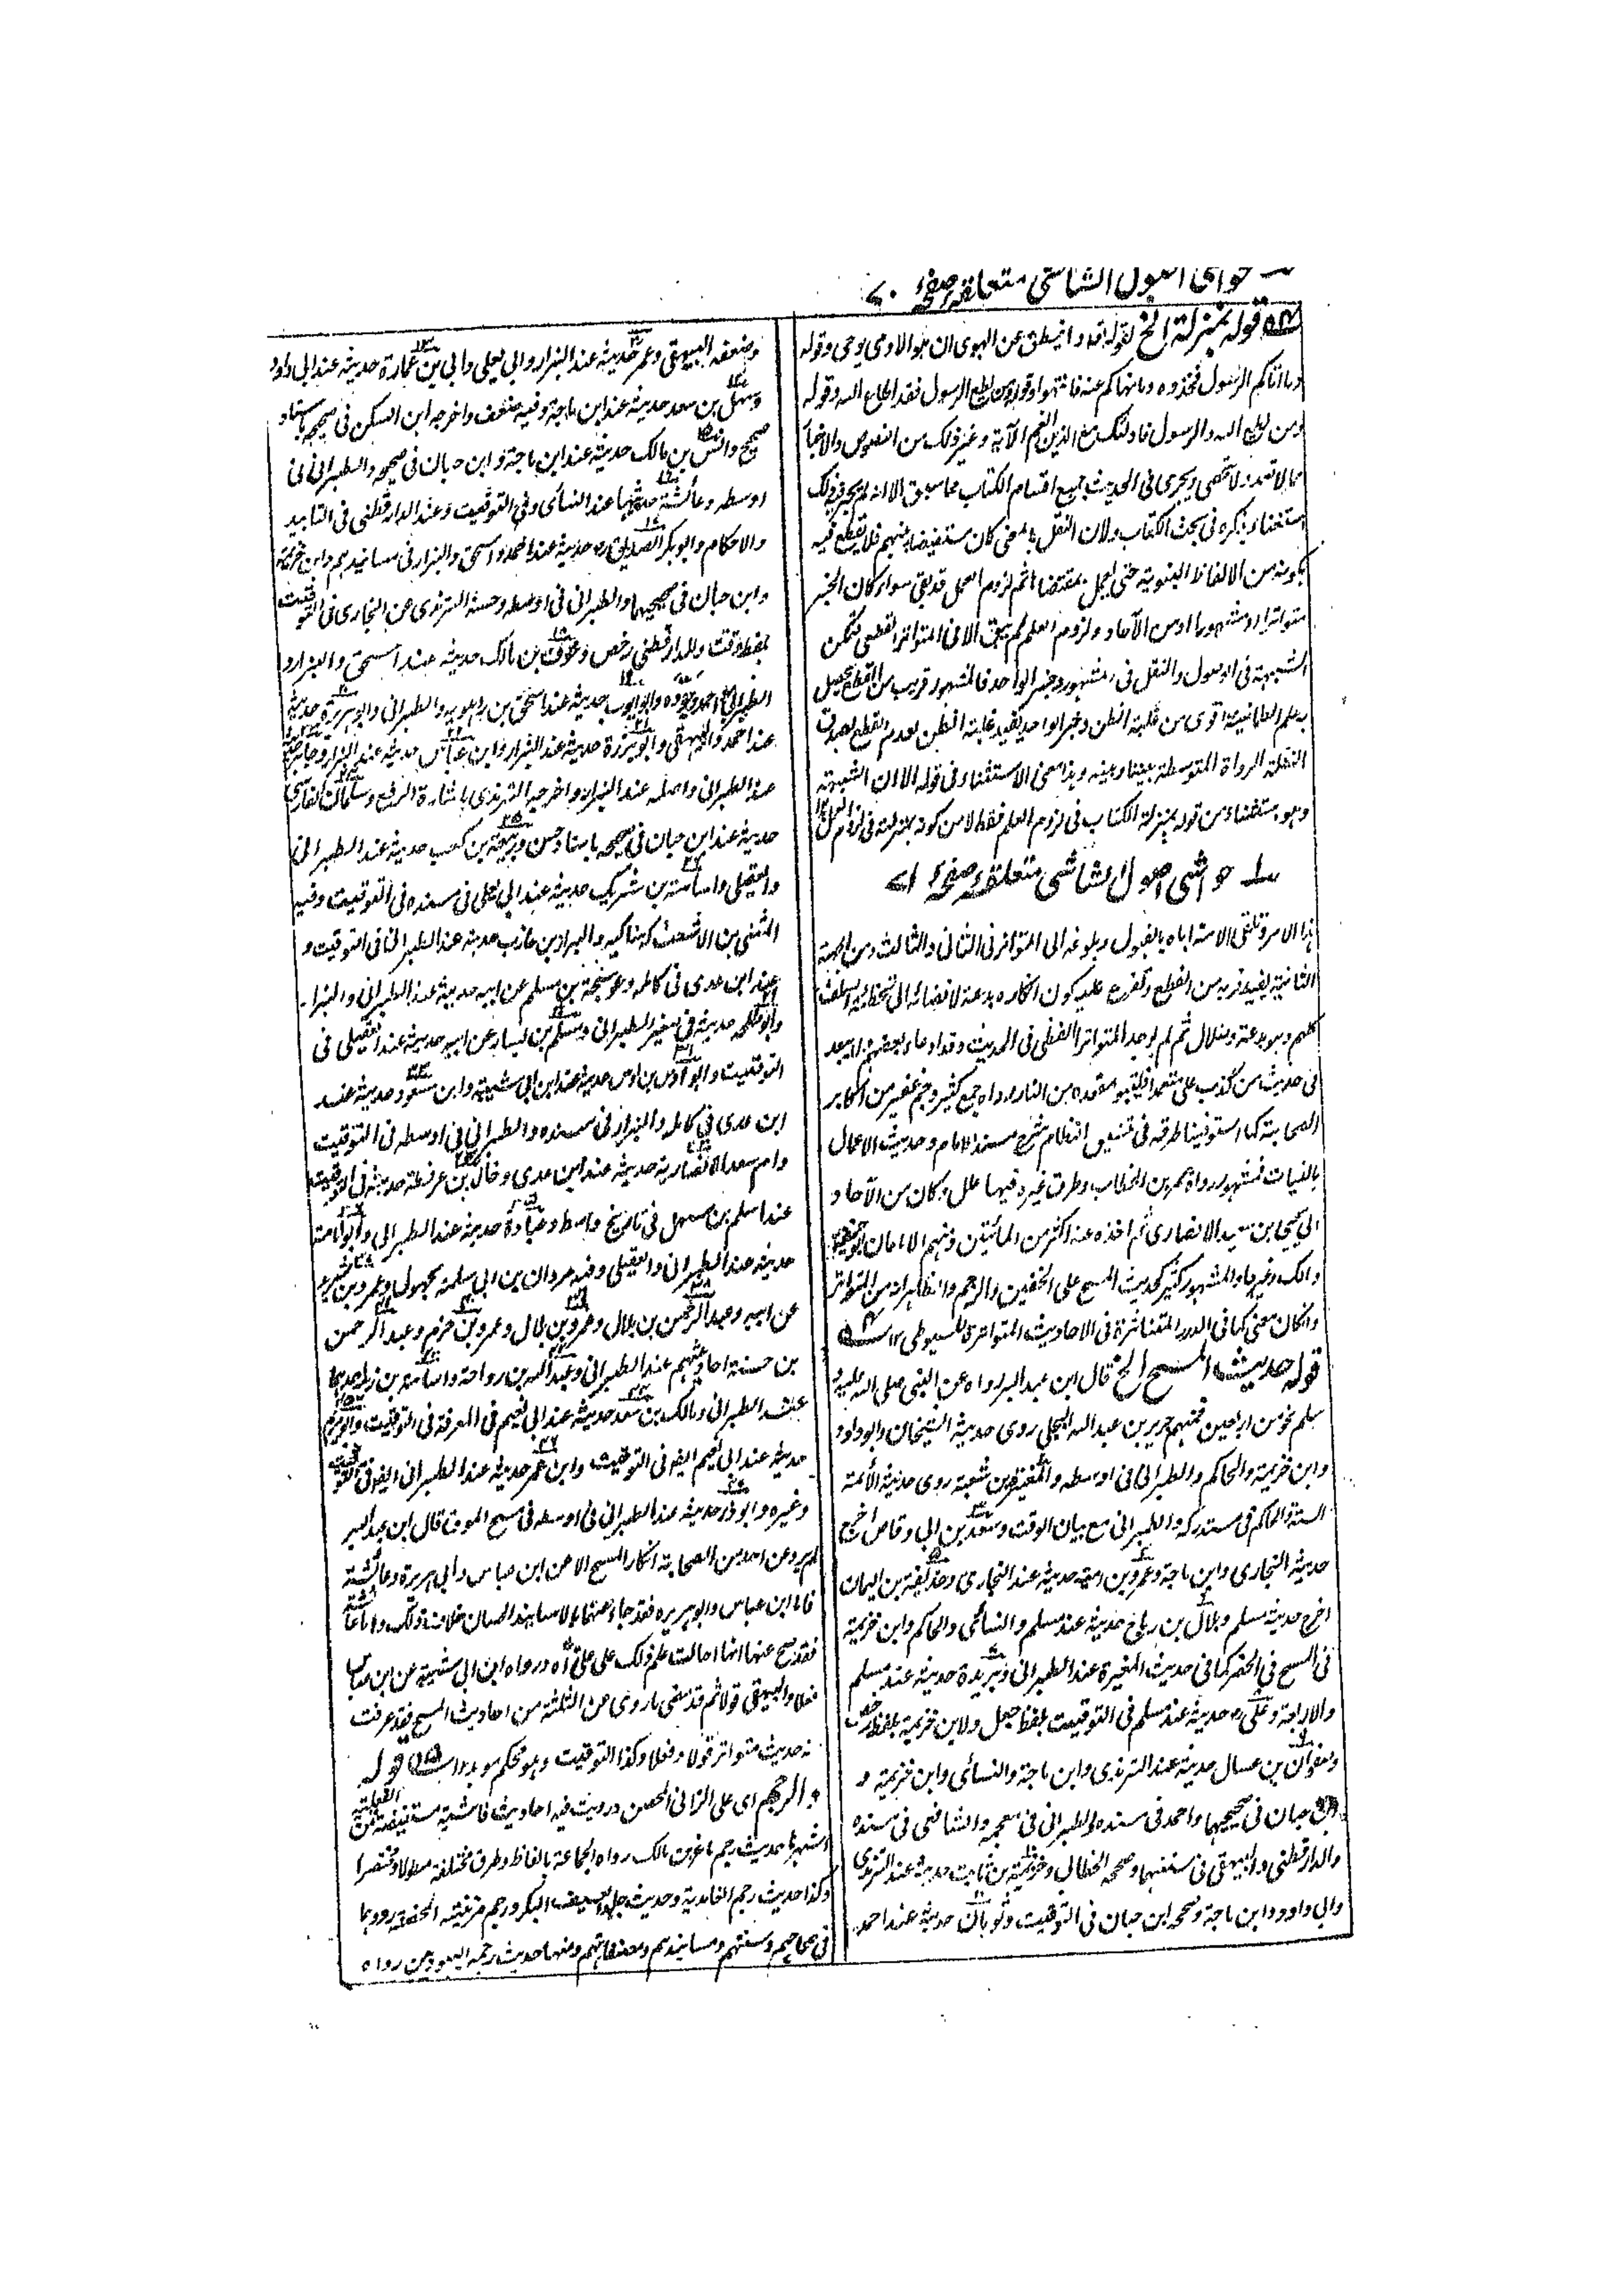 حواشی اصول الشاشی متعلقہ صفحہ ۷۰
قولہ بمنزلة الخ لقولہ تعہ وما ینطق عن الہوی ان ہو الا وحی یوحی وقولہ
وما اتاکم الرسول فخذوہ وما نہاکم عنہ فانتہوا وقولہ ومن یطع الرسول فقد اطاع اللہ وقولہ
ومن یطع اللہ والرسول فاولئک مع الذین انعم الآیة وغیر ذلک من النصوص والاخبار
مما لا تعد ولا تحصی ویجری فی الحدیث جمیع اقسام الکتاب مما سبق الا انہ لم یجر ذلک
استغناء بذکرہ فی بحث الکتاب ولان النقل بالمعنی کان مستفیضا بینہم فلا یقطع فیہ
بکونہ من الالفاظ النبویة حتی یعمل بمقتضاہا ثم لزوم العمل قد بقی سواء کان الخبر
متواترا او مشہورا او من الآحاد ولزوم العلم لم یبق الا فی المتواتر القطعی لتمکن
الشبہة فی الوصول والنقل فی المشہور وخبر الواحد فالمشہور قریب من القطع یحصل
بہ علم الطمانینة اقوی من غلبة الظن وخبر الواحد یفید غلبة الظن لعدم القطع بصدق
النقلة الرواة المتوسطة بیننا وبینہ وہذا معنی الاستثناء فی قولہ الا ان الشبہة
وہو مستثناء من قولہ بمنزلة الکتاب فی لزوم العلم فقط لا من کونہ بمنزلتہ فی لزوم العمل ۱۲
حواشی اصول الشاشی متعلقہ صفحہ ۷۱
ہذا الامر وتلقی الامة ایاہ بالقبول وبلوغہ الی المتواتر فی الثانی والثالث ومن الجہة
الثانیة یفید قربہ من القطع وتفرع علیہ کون انکارہ بدعة لافضائہ الی تخطائیة السلف
کلہم وہو بدعة وضلال ثم لم یوجد المتواتر اللفظی فی الحدیث وقد ادعاہ بعضہم
فی حدیث من کذب علی متعمدا فلیتبوء مقعدہ من النار رواہ جمع کثیر وجم غفیر من اکابر
الصحابة کما استوفینا طرقہ فی تنسیق النظام شرح مسند الامام وحدیث الاعمال
بالنیات فمشہور رواہ عمر بن الخطاب وطرق غیرہ فیہا علل وکان من الآحاد
الی یحیی بن سعید الانصاری ثم اخذہ عنہ اکثر من المائتین ومنہم الامامان ابوحنیفة
ومالک وغیرہما والمشہور کثیر کحدیث المسح علی الخفین والرجم والظاہر انہ من المتواتر
وان کان معنی کما فی الدرر المتناثرة فی الاحادیث المتواترة للسیوطی ۱۲
قولہ حدیث المسح الخ قال ابن عبد البر رواہ عن النبی صلی اللہ علیہ و
سلم نحو من اربعین فمنہم جریر بن عبد اللہ البجلی روی حدیثہ الشیخان وابو داود
وابن خزیمة والحاکم والطبرانی فی اوسطہ والمغیرة بن شعبة روی حدیثہ الائمة
الستة والحاکم فی مستدرکہ والطبرانی مع بیان الوقت وسعد بن ابی وقاص اخرج
حدیثہ البخاری وابن ماجة وعمرو بن امیة حدیثہ عند البخاری وحذیفة بن الیمان
اخرج حدیثہ مسلم وبلال بن رباح حدیثہ عند مسلم والنسائی والحاکم وابن خزیمة
فی المسح فی الحضر کما فی حدیث المغیرة عند الطبرانی وبریدة حدیثہ عند مسلم
والاربعة وعلی رض حدیثہ عند مسلم فی التوقیت بلفظ جعل ولابن خزیمة بلفظ رخص
وصفوان بن عسال حدیثہ عند الترمذی وابن ماجة والنسائی وابن خزیمة و
ابن حبان فی صحیحیہما واحمد فی مسندہ والطبرانی فی معجمہ والشافعی فی مسندہ
والدارقطنی والبیہقی فی سننہما وصححہ الخطابی وخزیمة بن ثابت حدیثہ عند الترمذی
وابی داود وابن ماجة وصححہ ابن حبان فی التوقیت وثوبان حدیثہ عند احمد
وضعفہ البیہقی وعمر حدیثہ عند البزار وابی یعلی وابی بن عمارة حدیثہ عند ابی داود
وسہل بن سعد حدیثہ عند ابن ماجة وفیہ ضعف واخرجہ ابن السکن فی صحیحہ باسناد
صحیح وانس بن مالک حدیثہ عند ابن ماجة وابن حبان فی صحیحہ والطبرانی فی
اوسطہ وعائشة حدیثہا عند النسائی وفی التوقیت وعند الدارقطنی فی التابید
والاحکام وابو بکر الصدیق رض حدیثہ عند احمد واسحق والبزار فی مسانیدہم وابن خزیمة
وابن حبان فی صحیحیہما والطبرانی فی اوسطہ وحسنہ الترمذی عن البخاری فی التوقیت
بلفظ وقت والدارقطنی رخص وعوف بن مالک حدیثہ عند اسحق والبزار و
الطبرانی احمد وابو ایوب حدیثہ عند اسحق بن راہویہ والطبرانی وابو ہریرة حدیثہ
عند احمد والبیہقی وابو برزة حدیثہ عند البزار وابن عباس حدیثہ عند البزار وجابر حدیثہ
عند الطبرانی واصلہ عند البزار واخرجہ الترمذی باشارة الرفع وسلمان الفارسی
حدیثہ عند ابن حبان فی صحیحہ باسناد حسن وربیعة بن کعب حدیثہ عند الطبرانی
والعقیلی واسامة بن شریک حدیثہ عند ابی یعلی فی مسندہ فی التوقیت وفیہ
المثنی بن الاشعث کہ مناکیر والبراء بن عازب حدیثہ عند الطبرانی فی التوقیت و
عند ابن عدی فی کاملہ وعوسجة بن مسلم عن ابیہ حدیثہ عند الطبرانی والبزار
وابو طلحہ حدیثہ فی صغیر الطبرانی ومسلم بن یسار عن ابیہ حدیثہ عند العقیلی فی
التوقیت وابو اوس بن اوس حدیثہ عند ابن ابی شیبة وابن مسعود حدیثہ عند
ابن عدی فی کاملہ والبزار فی مسندہ والطبرانی فی اوسطہ فی التوقیت
وام سعد الانصاریة حدیثہ عند ابن عدی وخالد بن عرفطة حدیثہ فی التوقیت
عند اسلم بن سہل فی تاریخ واسط وعبادة حدیثہ عند الطبرانی وابو امامة
حدیثہ عند الطبرانی والعقیلی وفیہ مروان بن ابی سلمة مجہول وعمرو بن
عن ابیہ وعبد الرحمن بن بلال وعمرو بن بلال وعمرو بن حزم وعبد الرحمن
بن حسنة احادیثہم عند الطبرانی وعبد اللہ بن رواحة واسامة بن زید حدیثہما
عند الطبرانی ومالک بن سعد حدیثہ عند ابی نعیم فی المعرفة فی التوقیت وابو مریم
حدیثہ عند ابی نعیم ایضا فی التوقیت وابن عمر حدیثہ عند الطبرانی ایضا فی التوقیت
وغیرہ وابو ذر حدیثہ عند الطبرانی فی اوسطہ فی مسح الموق قال ابن عبد البر
لم یرو عن احد من الصحابة انکار المسح الا عن ابن عباس وابی ہریرة وعائشة
فاما ابن عباس وابو ہریرہ فقد جاء عنہما بالاسانید الحسان خلاف ذلک واما عائشة
فقد صح عنہا انہا احالت علم ذلک علی علی رض اہ ورواہ ابن ابی شیبة عن ابن عباس
فعلا والبیہقی قولا ثم قد مضی ما روی عن الثلثة من احادیث المسح فقد عرفت
انہ حدیث متواتر قولا وفعلا وکذا التوقیت وہو محکم موبد ۱۲ قولہ
والرجم ای علی الزانی المحصن ورویت فیہ احادیث فاشیة مستفیضة فمن الفعلیة
اشہرہا حدیث رجم ماعز بن مالک رواہ الجماعة بالفاظ وطرق مختلفة مطولا ومختصرا
وکذا حدیث رجم الغامدیة وحدیث جلد العسیف البکر ورجم مزنیتہ المحصنة رووہما
فی صحاحہم وسننہم ومسانیدہم ومصنفاتہم ومنہا حدیث رجمہ الیہود ومن رواہ